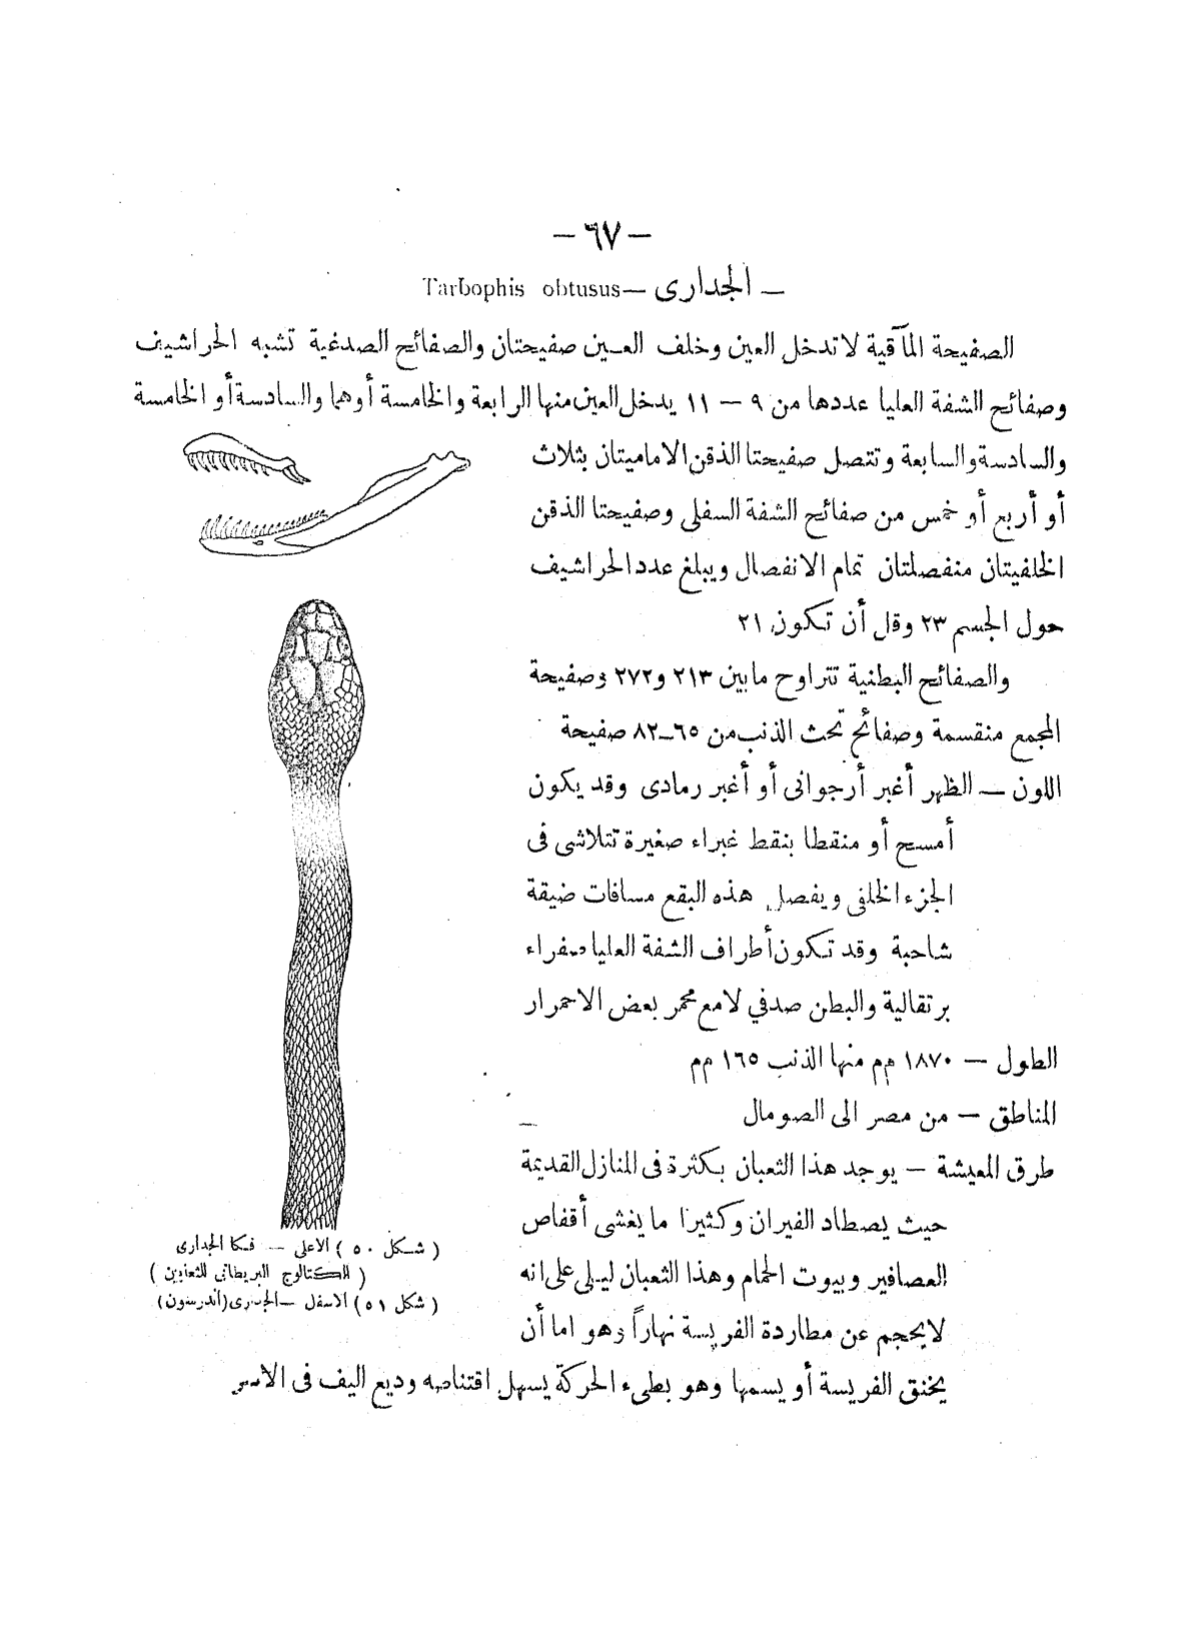 — ٦٧ —
— الجدارى — Tarbophis obtusus
الصفيحة المآقية لا تدخل العين وخلف العين صفيحتان والصفائح الصدغية تشبه الحراشيف
وصفائح الشفة العليا عددها من ٩ — ١١ يدخل العين منها الرابعة والخامسة أوهما والسادسة أو الخامسة
والسادسة والسابعة وتتصل صفيحتا الذقن الاماميتان بثلاث
أو أربع أو خمس من صفائح الشفة السفلى وصفيحتا الذقن
الخلفيتان منفصلتان تمام الانفصال ويبلغ عدد الحراشيف
حول الجسم ٢٣ وقل أن تكون ٢١
والصفائح البطنية تتراوح مابين ٢١٣ و٢٧٢ وصفيحة
المجمع منقسمة وصفائح تحث الذنب من ٦٥—٨٢ صفيحة
اللون — الظهر أغبر أرجوانى أو أغبر رمادى وقد يكون
أمسح أو منقطا بنقط غبراء صغيرة تتلاشى فى
الجزء الخلفى ويفصل هذه البقع مسافات ضيقة
شاحبة وقد تكون أطراف الشفة العليا صفراء
برتقالية والبطن صدفي لامع محمر بعض الاحمرار
الطول — ١٨٧٠ مم منها الذنب ١٦٥ مم
المناطق — من مصر الى الصومال
طرق المعيشة — يوجد هذا الثعبان بكثرة فى المنازل القديمة
حيث يصطاد الفيران وكثيرا ما يغشى أقفاص
العصافير وبيوت الحمام وهذا الثعبان ليلى على انه
لايحجم عن مطاردة الفريسة نهاراً وهو اما أن
يخنق الفريسة أو يسمها وهو بطىء الحركة يسهل اقتناصه وديع اليف فى الاسر
( شكل ٥٠ ) الاعلى — فكا الجدارى
( الكتالوج البريطانى للثعابين )
( شكل ٥١ ) الاسفل — الجدارى (أندرسون)